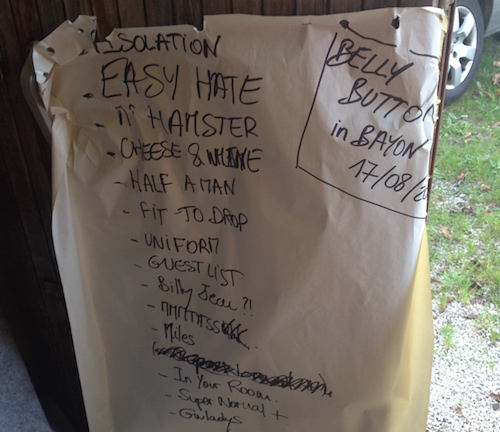 ISOLATION
EASY HATE
- Mº HAMSTER
- CHEESE & WINE
- HALF A MAN
- FIT TO DROP
- UNIFORM
- GUEST LIST
- Billy Jean ?!
- Miles
- In Your Room
- Super Normal +
- Gwladys
BELLY
BUTTON
in BAYON
17/08/20